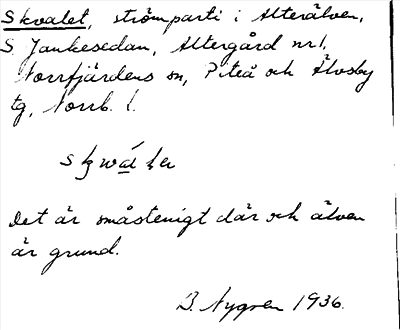 Skvalet, strömparti i Alterälven,
S. Jankesedan, Altergård nr 1,
Norrfjärdens sn, Piteå och Älvsby
tg, Norrb. l.
Det är småstenigt där och älven
är grund.
B. Nygren 1936.